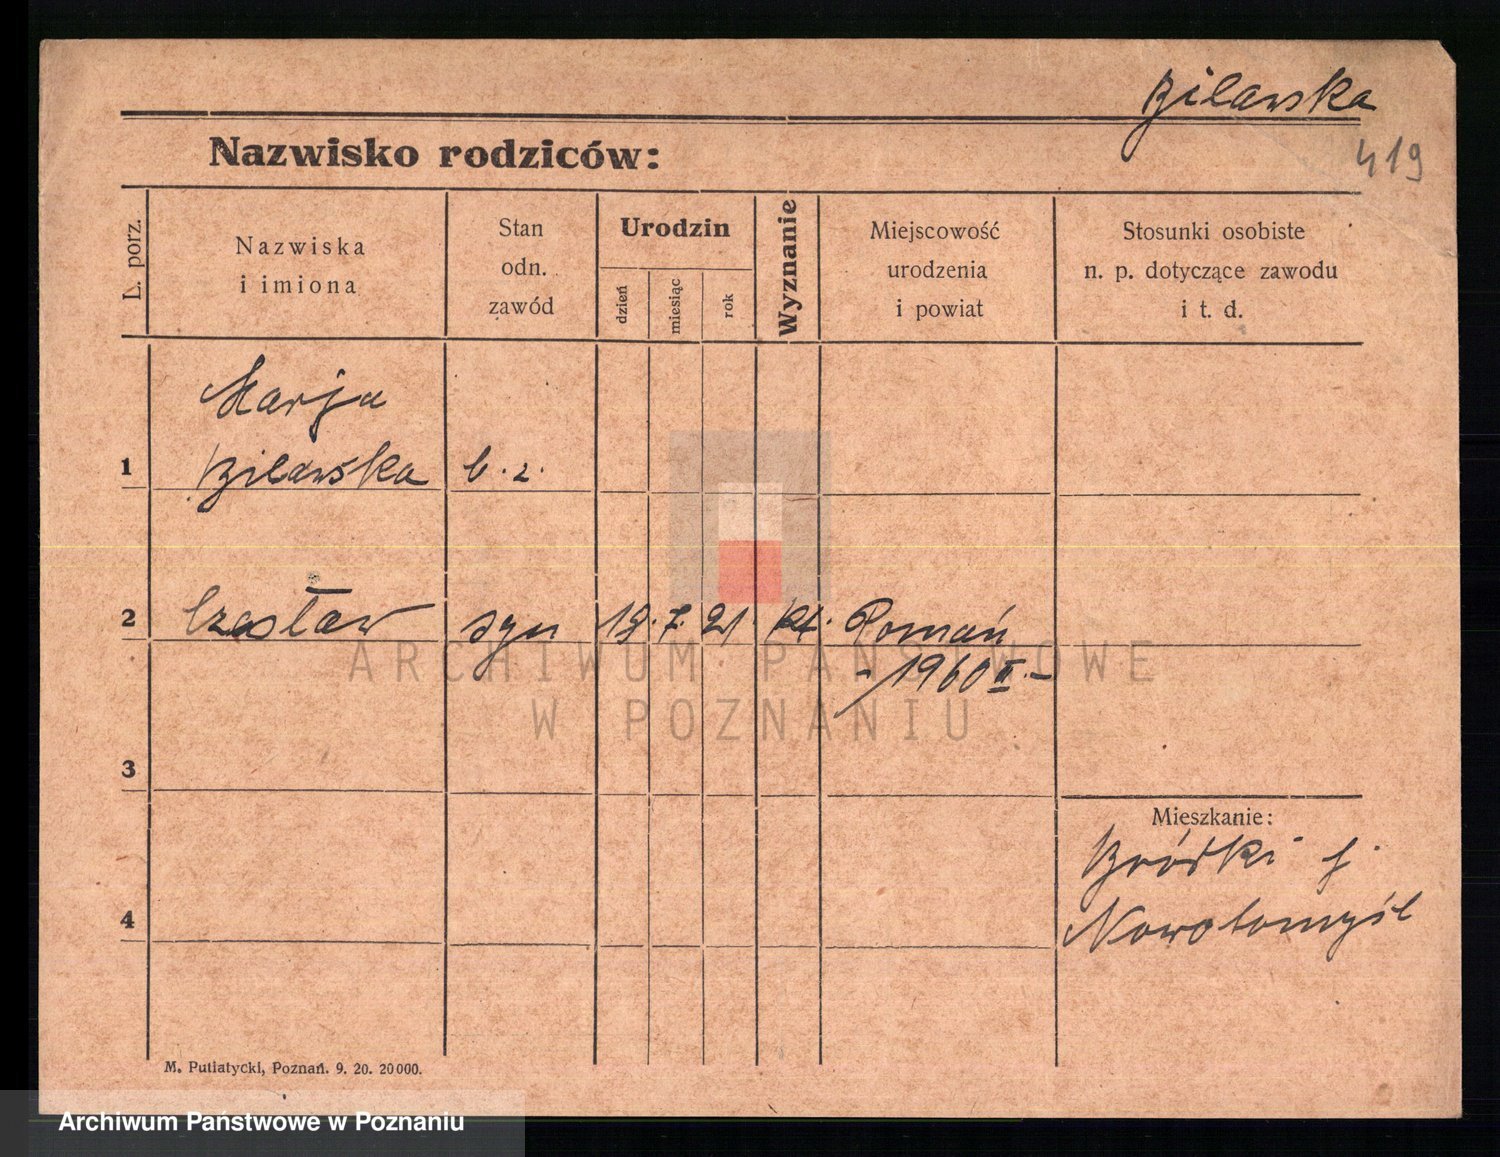 Bilawska
419
Nazwisko rodziców:
L. porz.
Nazwiska
i imiona
Stan
odn.
zawód
Urodzin
dzień
miesiąc
rok
Wyznanie
Miejscowość
urodzenia
i powiat
Stosunki osobiste
n. p. dotyczące zawodu
i t. d.
Marja
1 Bilawska b. z.
2 Czesław syn 19. 7. 21. kt. Poznań
- 1960 II. -
3
Mieszkanie:
Bródki p.
4 Nowotomyśl
M. Putiatycki, Poznań. 9. 20. 20000.
ARCHIWUM PAŃSTWOWE
W POZNANIU
Archiwum Państwowe w Poznaniu